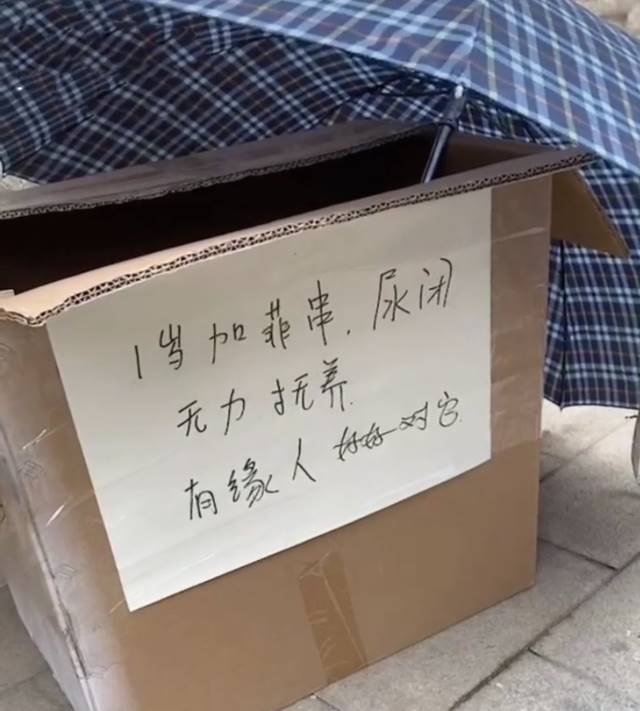 1岁加菲串,尿闭
无力抚养.
有缘人好好对它.